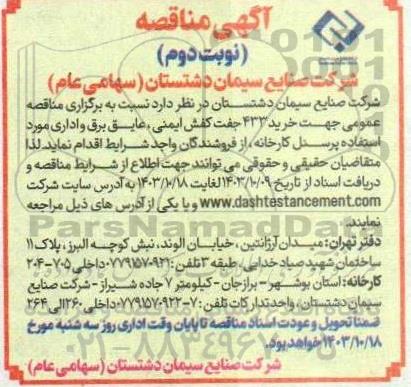 آگهی مناقصه
(نوبت دوم)
شرکت صنایع سیمان دشتستان (سهامی عام)
شرکت صنایع سیمان دشتستان در نظر دارد نسبت به برگزاری مناقصه
عمومی جهت خرید ۴۳۳ جفت کفش ایمنی، عایق برق و اداری مورد
استفاده پرسنل کارخانه، از فروشندگان واجد شرایط اقدام نماید. لذا
متقاضیان حقیقی و حقوقی می توانند جهت اطلاع از شرایط مناقصه و
دریافت اسناد از تاریخ ۱۴۰۳/۱۰/۰۹ لغایت ۱۴۰۳/۱۰/۱۸ به آدرس سایت شرکت
www.dashtestancement.com و یا یکی از آدرس های ذیل مراجعه
نمایند.
دفتر تهران: میدان آرژانتین، خیابان الوند، نبش کوچه البرز، پلاک ۱۱
ساختمان شهید صیاد خدایی، طبقه ۳ تلفن: ۰۷۷۹۱۵۷۰۹۲۱ داخلی ۷۰۵-۲۰۴
کارخانه: استان بوشهر - برازجان - کیلومتر ۷ جاده شیراز - شرکت صنایع
سیمان دشتستان، واحد تدارکات تلفن: ۷-۰۷۷۹۱۵۷۰۹۲۲ داخلی ۲۶۰ الی ۲۶۴
ضمنا تحویل و عودت اسناد مناقصه تا پایان وقت اداری روز سه شنبه مورخ
۱۴۰۳/۱۰/۱۸ خواهد بود.
شرکت صنایع سیمان دشتستان (سهامی عام)